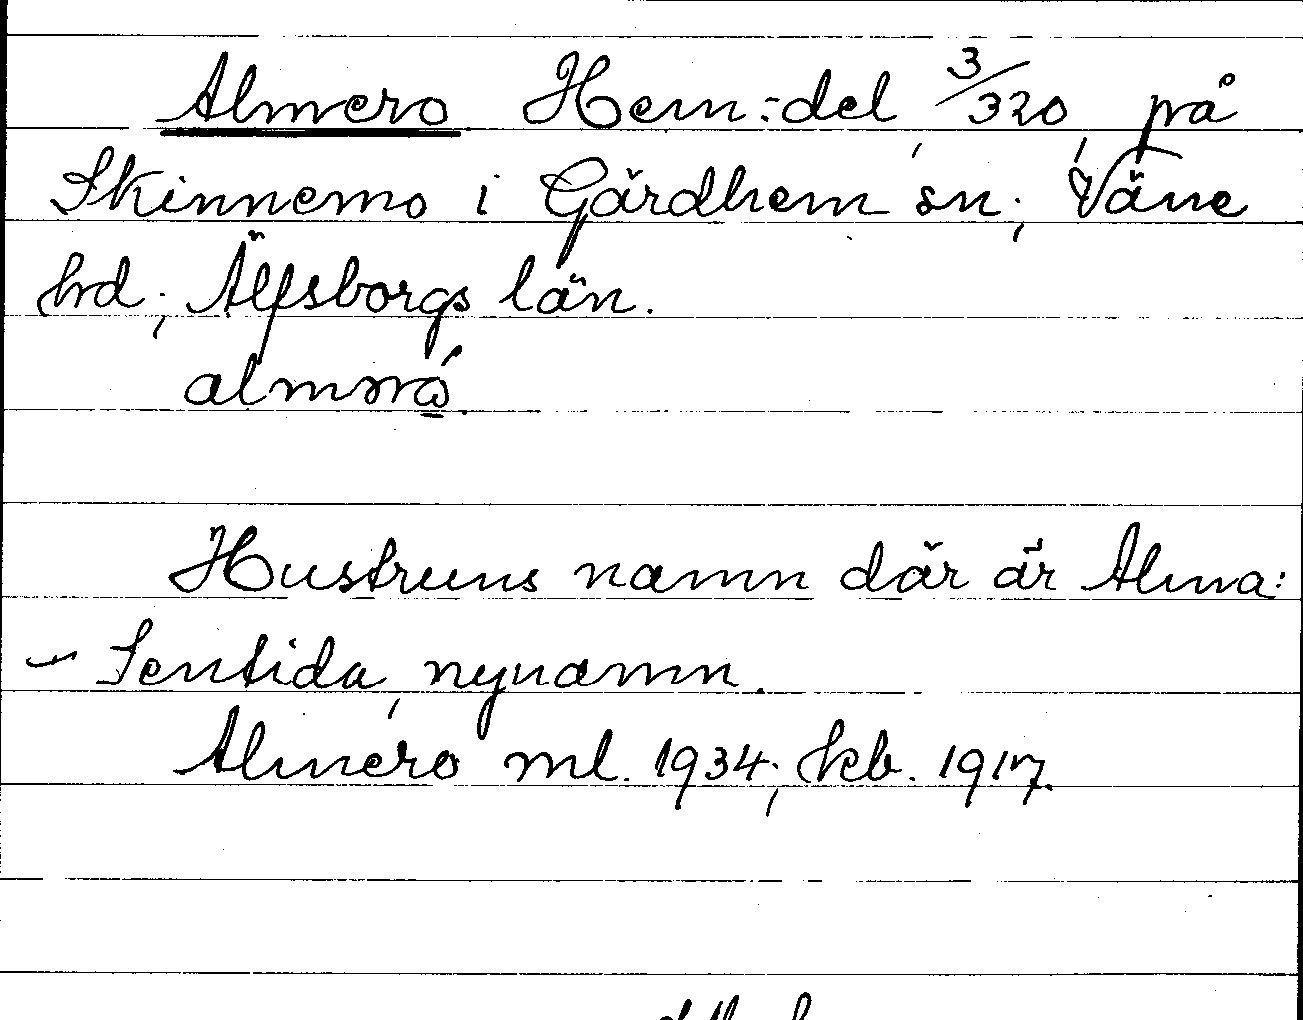 Almero Hem:del, 3/320, på
Skinnemo i Gärdhem sn; Väne
hd; Älfsborgs län.
Hustruns namn där är Alma:
- Sentida, nynamn.
Almero ml. 1934; kb. 1917.